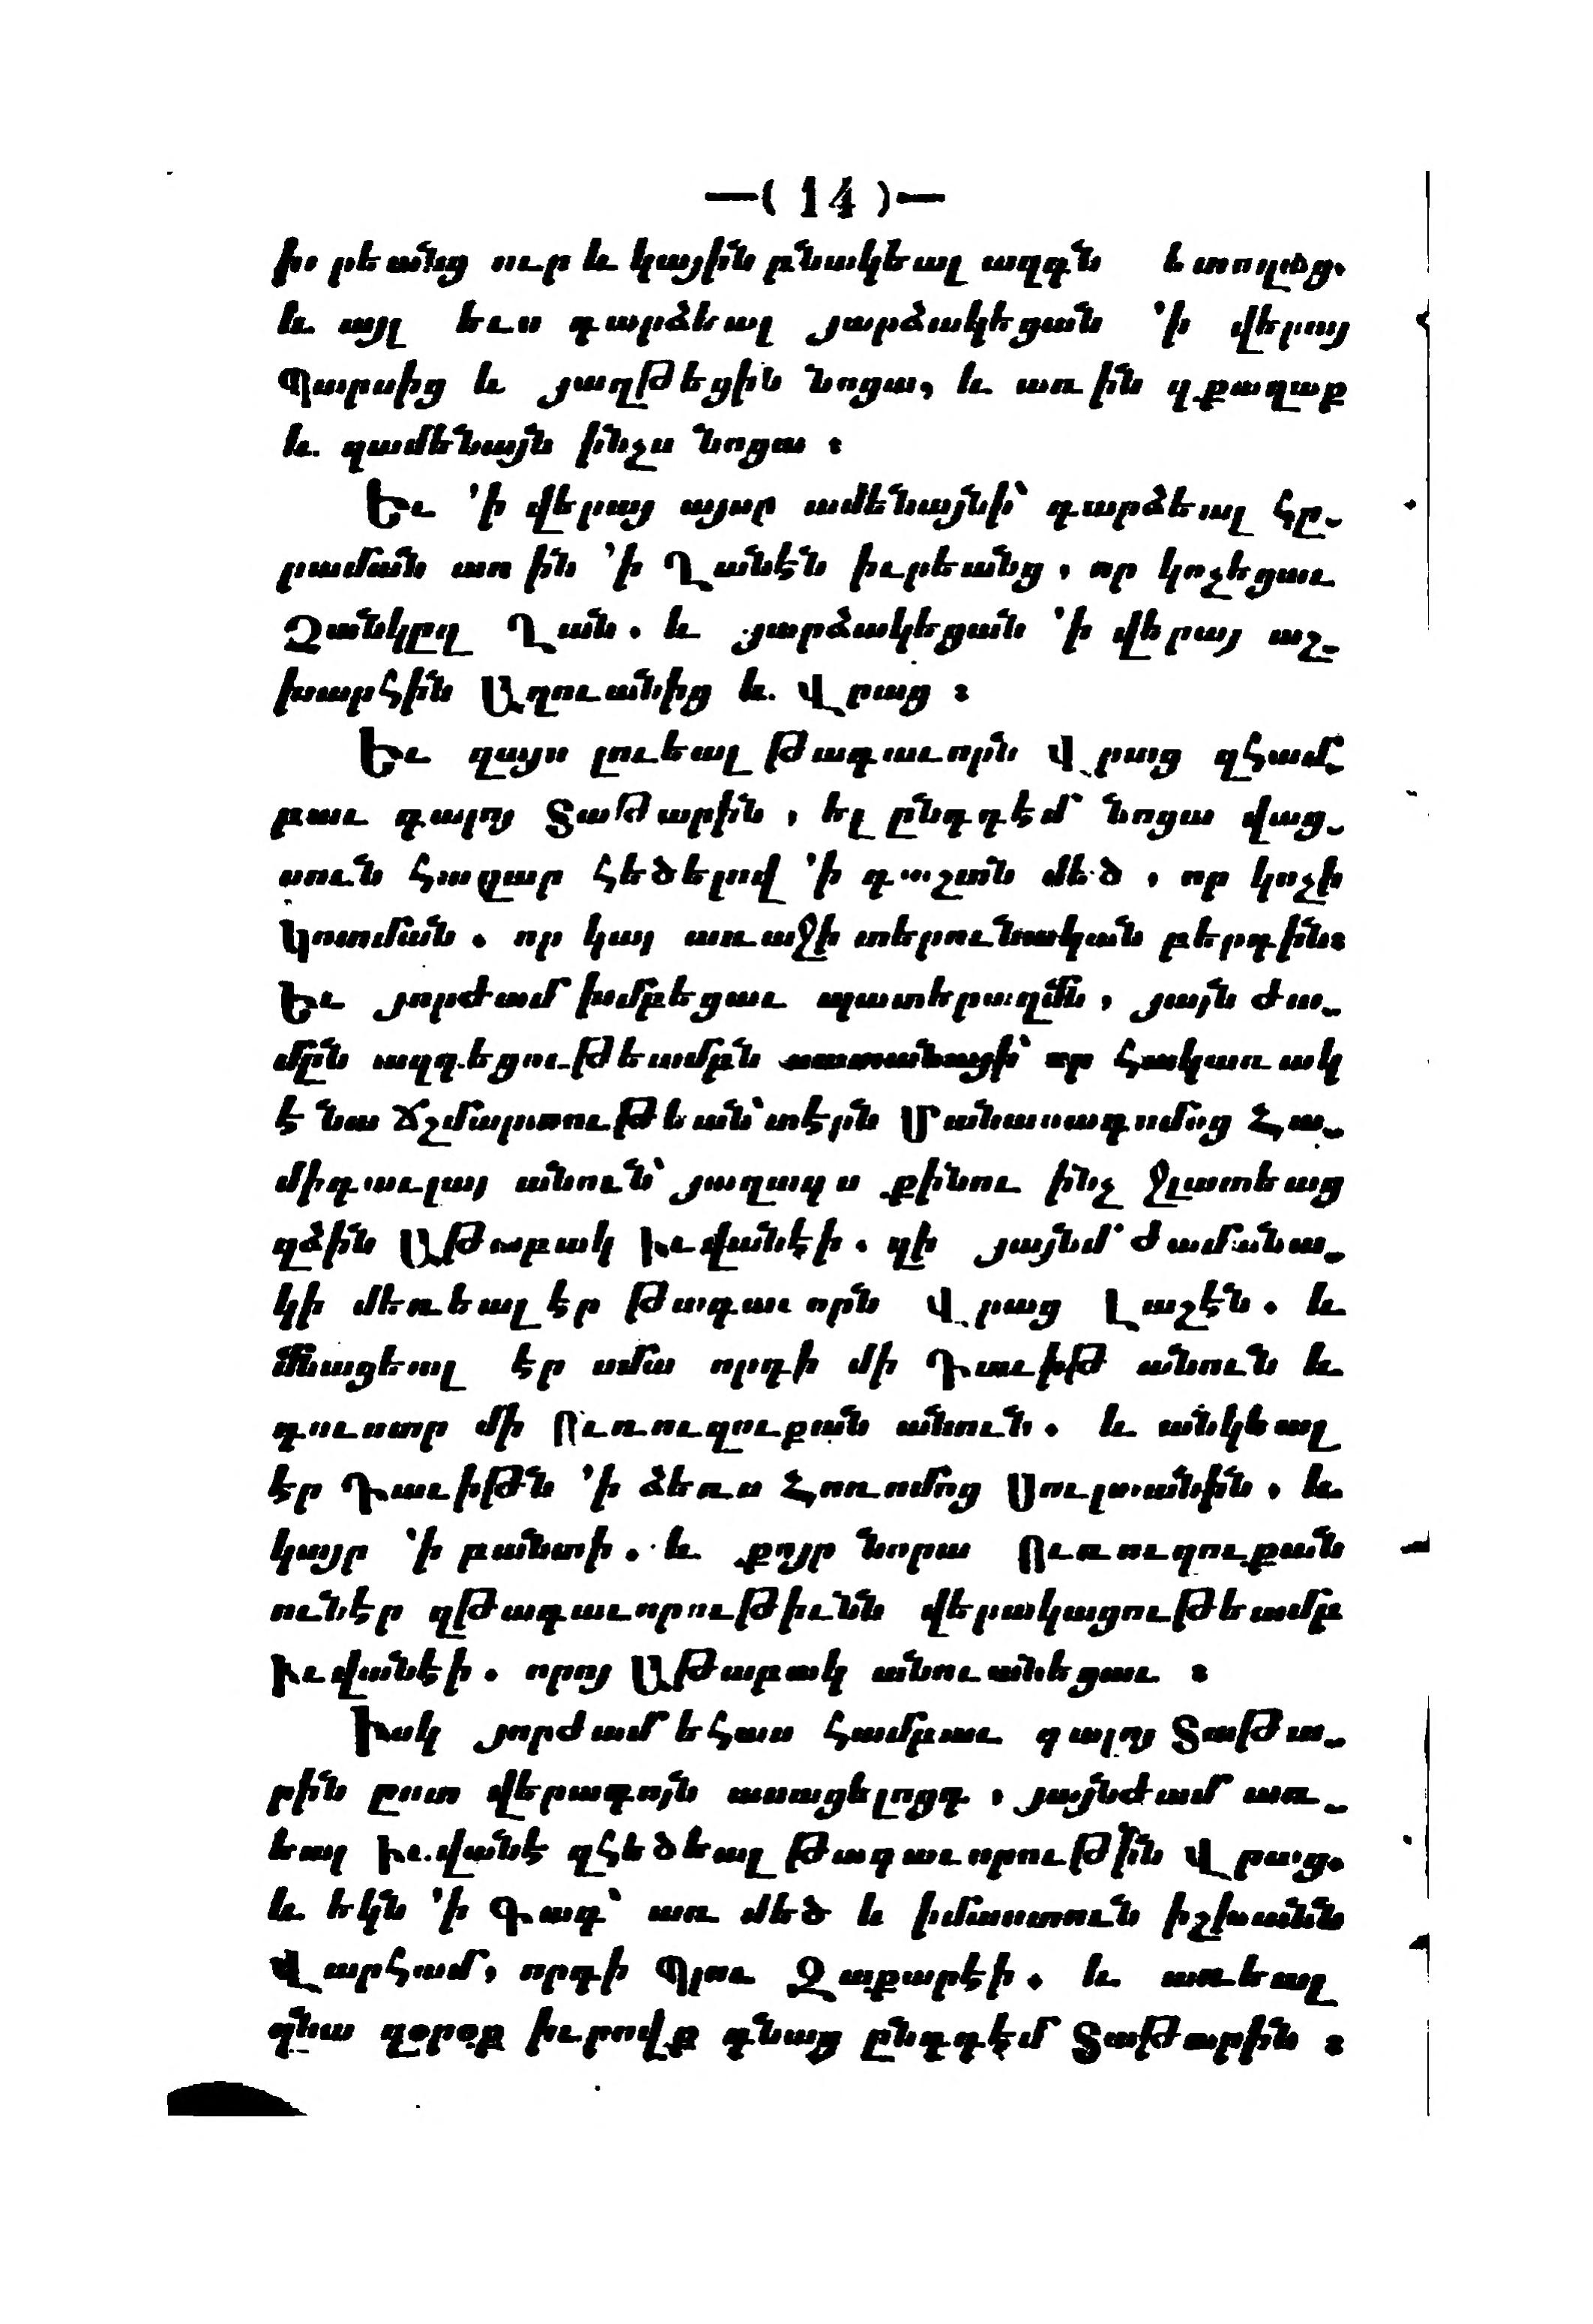 —( 14 )—
իւրեանց ուր և կային բնակեալ ազգն նետողաց.
և այլ ևս դարձեալ յարձակեցան ՚ի վերայ
Պարսից և յաղթեցին նոցա, և առին զքաղաք
և զամենայն ինչս նոցա :
Եւ ՚ի վերայ այսր ամենայնի՝ դարձեալ հը֊
րաման առին ՚ի Ղանէն իւրեանց, որ կոչեցաւ
Չանկըղ Ղան. և յարձակեցան ՚ի վերայ աշ֊
խարհին Աղուանից և Վրաց :
Եւ զայս լուեալ թագաւորն Վրաց զհամ֊
բաւ գալոյ Տաթարին, ել ընդդէմ նոցա վաց֊
սուն հազար հեծելով ՚ի դաշտն մեծ, որ կոչի
Կոտման. որ կայ առաջի տերունական բերդին:
Եւ յորժամ խմբեցաւ պատերազմն, յայն ժա֊
մըն ազդեցութեամբն սատանայի՝ որ հակառակ
է նա ճշմարտութեան՝ տէրն Մանասագոմոց Հա֊
միդաւլայ անուն՝ յաղագս քինու ինչ ջլատեաց
զձին Աթաբակ Իւվանէի. զի յայնմ ժամանա֊
կի մեռեալ էր թագաւորն Վրաց Լաշէն. և
մնացեալ էր սմա որդի մի Դաւիթ անուն և
դուստր մի Ըւռուզուքան անուն. և անկեալ
էր Դաւիթն ՚ի ձեռս Հոռոմոց Սուլտանին, և
կայր ՚ի բանտի. և քոյր նորա Ըւռուզուքան
ունէր զթագաւորութիւնն վերակացութեամբ
Իւվանէի. որոյ Աթաբակ անուանեցաւ :
Իսկ յորժամ եհաս համբաւ գալոյ Տաթա֊
րին ըստ վերագոյն ասացելոցդ, յայնժամ առ֊
եալ Իւվանէ զհեծեալ թագաւորութին Վրաց.
և եկն ՚ի Գագ՝ առ մեծ և իմաստուն իշխանն
Վարհամ, որդի Պլու Զաքարէի. և առեալ
զնա զօրօք իւրովք գնաց ընդդէմ Տաթարին :